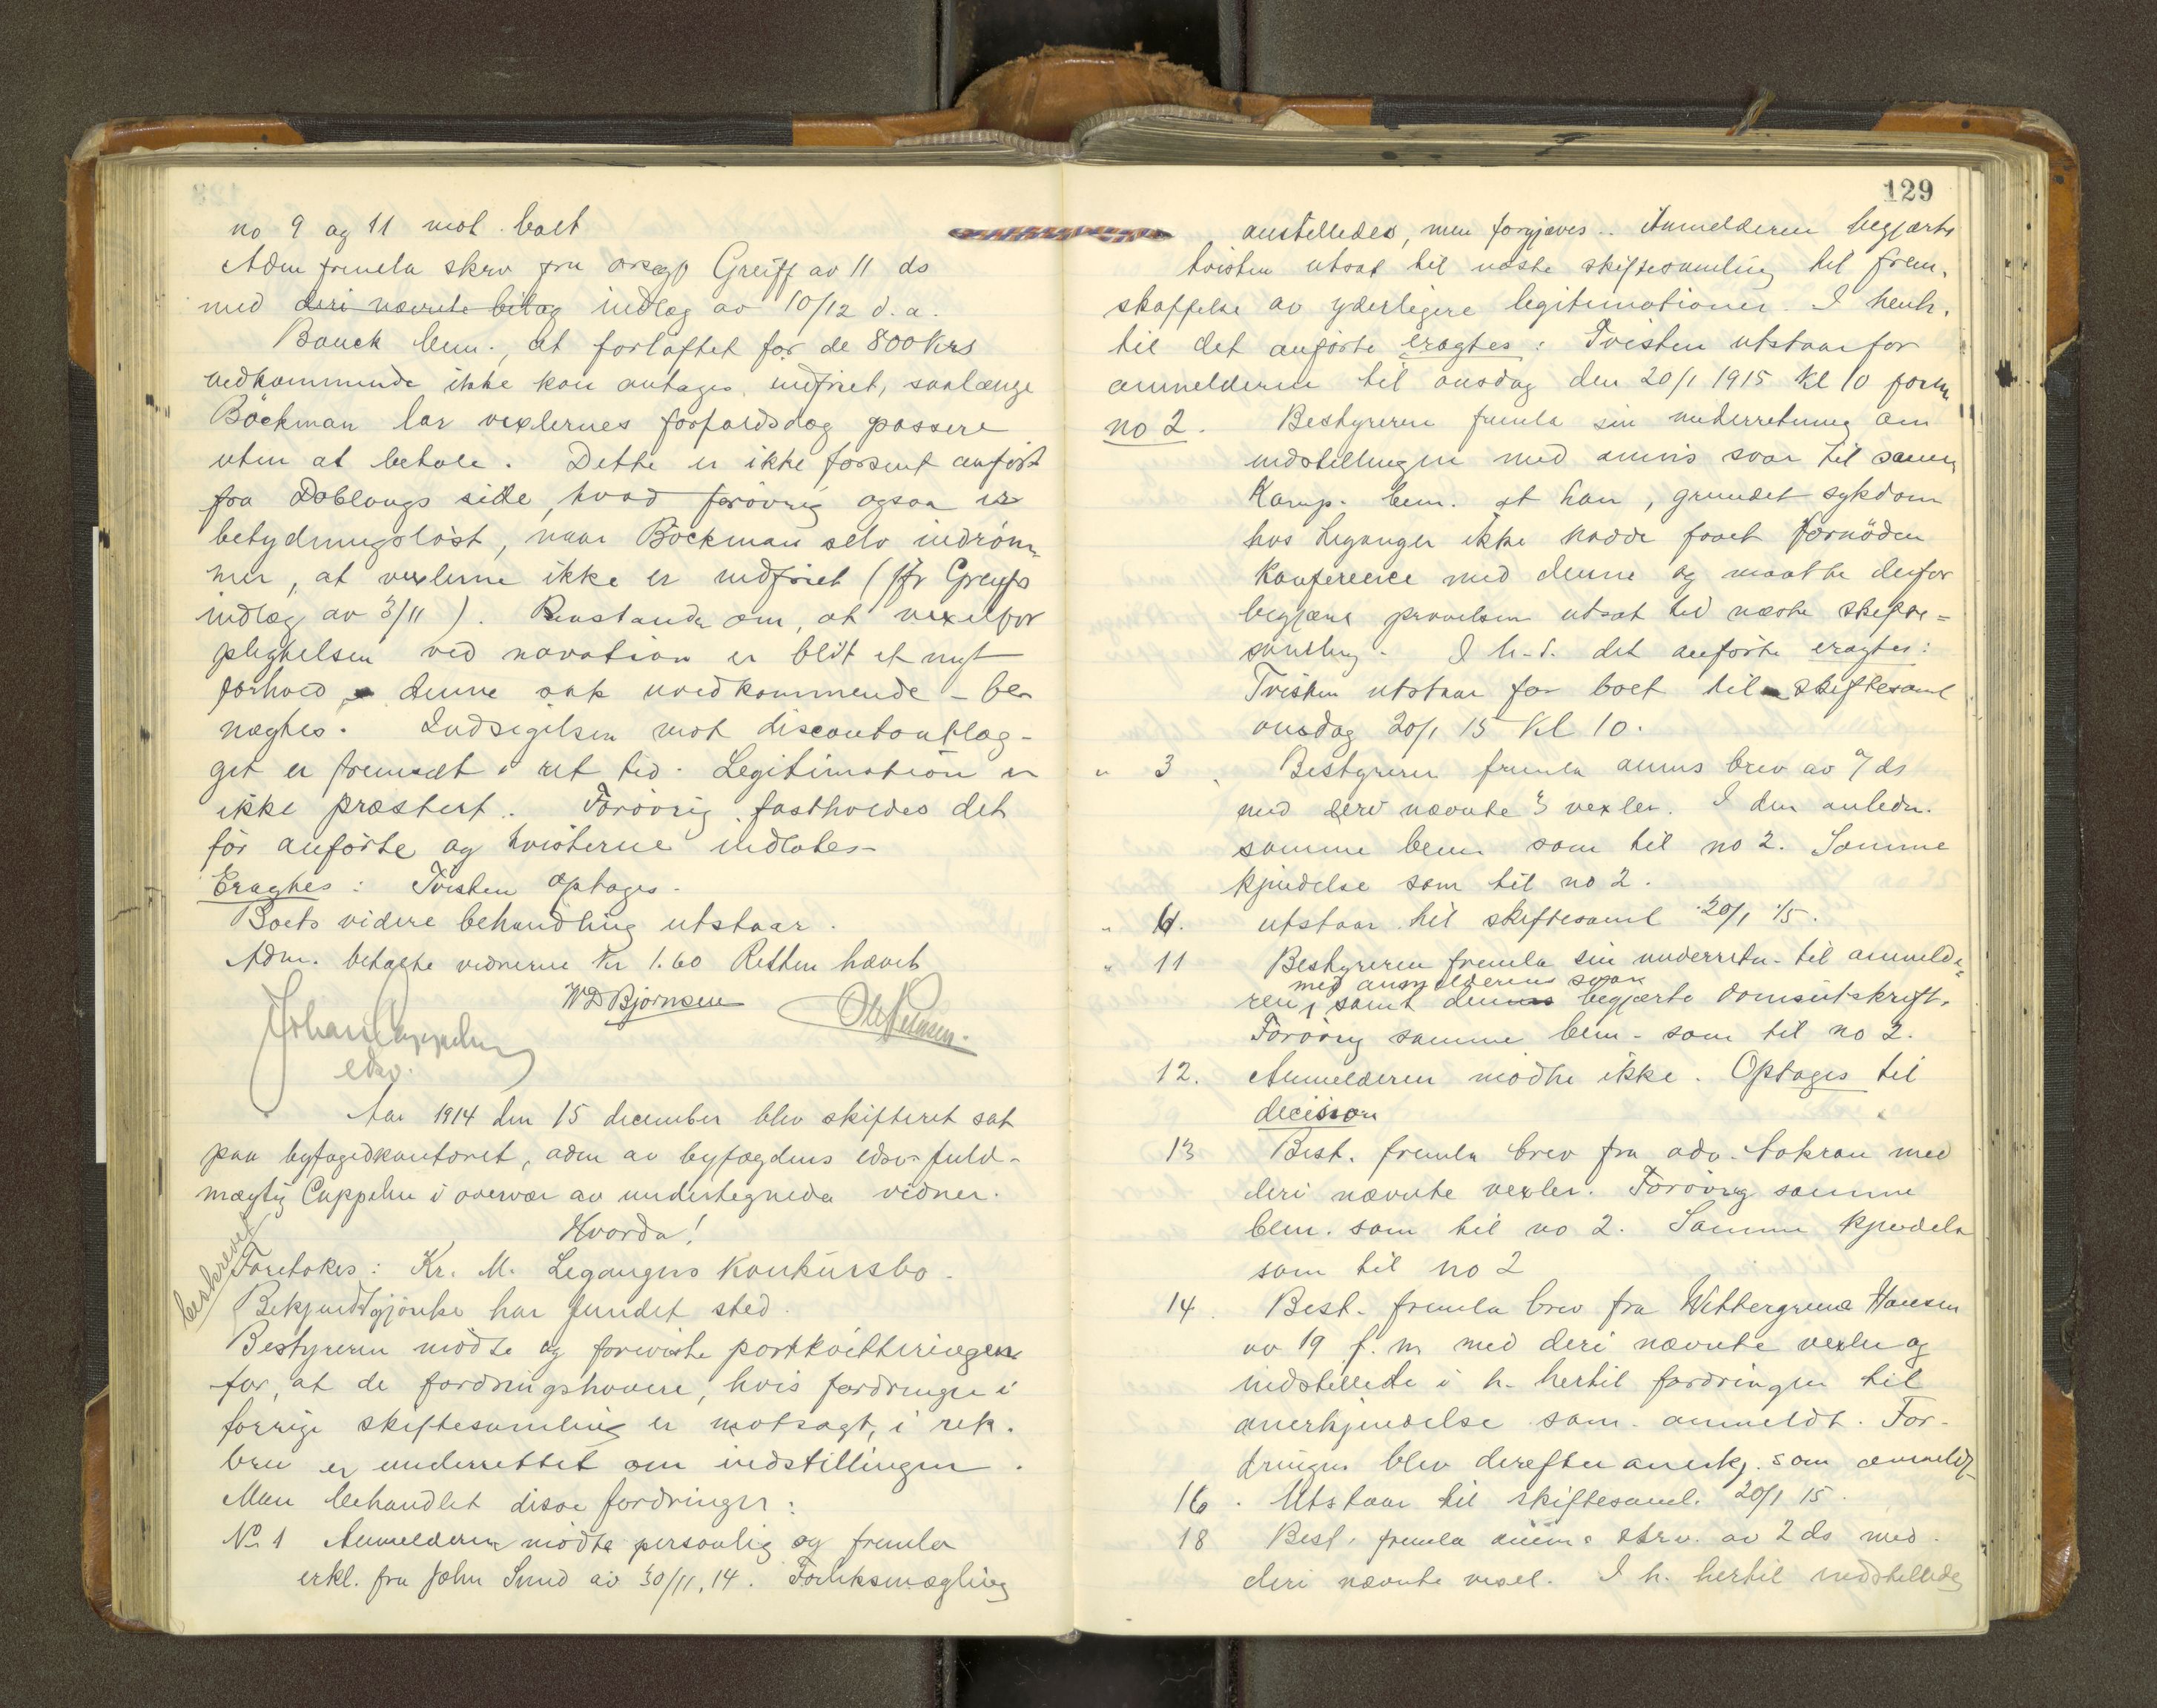 no 9 og 11 mot boet
Adm fremla skrv fra orsagf Greiff av 11 ds
med deri nævnte bilag indlæg av 10/12 d.a.
Bauck bem., at forløftet for de 800 Krs
vedkommende ikke kan antages indfriet, saalænge
Böckman lar vexlernes forfaldsdag passere
uten at betale. Dette er ikke forsent anført
fra Doblougs side, hvad forøvrig ogsaa er
betydningsløst, naar Böckman selv indrøm-
mer, at vexlerne ikke er indfriet (jfr Greiffs
indlæg av 3/11). Paastanden om, at vexelfor
pligtelsen ved novation er blit et nyt
forhold denne sak uvedkommende - be-
nægtes. Indsigelsen mot discontoutlæg-
get er fremsat i ret tid. Legitimation er
ikke præstert. Forøvrig fastholdes det
før anførte og tvisterne indlates
Eragtes: Tvisten optages.
Boets videre behandling utstaar.
Adm. betalte vidnerne Kr 1.60 Retten hævet
Johan Cappelen WD Bjørnsen
edsv.
Aar 1914 den 15 december blev skifteret sat
paa byfogedkontoret, adm av byfogdens edsv. fuld-
mægtig Cappelen i overvær av undertegnede vidner.
Hvorda!
beskrevet
Foretokes: Kr. M. Legangers konkursbo.
Bekjendtgjørelse har fundet sted.
Bestyreren mødte og foreviste postkvitteringen
for, at de fordringshavere, hvis fordringer i
forrige skiftesamling er motsagt, i rek.
brev er underrettet om indstillingen.
Man behandlet disse fordringer:
No. 1 Anmelderen mødte personlig og fremla
erkl. fra John Smid av 30/11.14. Forliksmægling
129
anstilledes, men forgjæves. Anmelderen begjærte
tvisten utsat til næste skiftesamling til frem-
skaffelse av yderligere legitimationer. I henh.
til det anførte eragtes: Tvisten utstaar for
anmelderen til onsdag den 20/1 1915 kl 10 form
no 2. Bestyreren fremla sin underretning om
indstillingen med anms svar til samme
Komp. bem. at han, grundet sykdom
hos Leganger ikke hadde faaet fornøden
konference med denne og maatte derfor
begjære prøvelsen utsat til næste skifte-
samling. I h. t. det anførte eragtes:
Tvisten utstaar for boet til skiftesaml
onsdag 20/1 15 Kl 10.
" 3 Bestyreren fremla anms brev av 7 ds
med deri nævnte 3 vexler. I den anledn.
samme bem som til no 2. Samme
kjendelse som til no 2.
" 6. utstaar til skiftesaml 20/1 15.
" 11 Bestyreren fremla sin underretn. til anmelde-
med anmelderens svar
ren, samt dennes begjærte domsutskrift.
Forøvrig samme bem. som til no 2.
12. Anmelderen mødte ikke. Optages til
decision
13 Best. fremla brev fra adv. Aakran med
deri nævnte vexler. Forøvrig samme
bem. som til no 2. Samme kjendelse
som til no 2
14. Best. fremla brev fra Wettergreen Hansen
av 19 f. m med deri nævnte vexler og
indstillede i h. hertil fordringen til
anerkjendelse som anmeldt. For-
dringen blev derefter anerkj. som anmeldt
16. Utstaar til skiftesaml. 20/1 15.
18 Best. fremla anm.s skrv. av 2 ds med
deri nævnte vexel. I h. hertil indstilledes